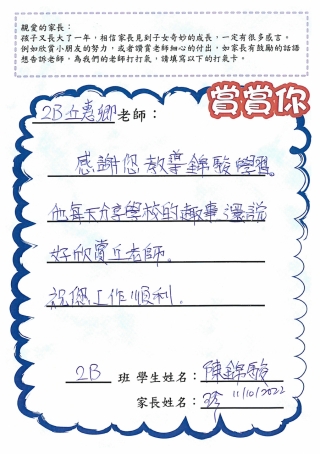 親愛的家長：
孩子又長大了一年，相信家長見到子女奇妙的成長，一定有很多感言。
例如欣賞小朋友的努力，或者讚賞老師細心的付出，如家長有鼓勵的話語
想告訴老師，為我們的老師打打氣，請填寫以下的打氣卡。
賞賞你
2B 丘惠卿老師：
感謝您教導錦駿學習。
他每天分享學校的趣事，還說
好欣賞丘老師。
祝您工作順利。
2B 班 學生姓名：陳錦駿
家長姓名： 11/10/2022